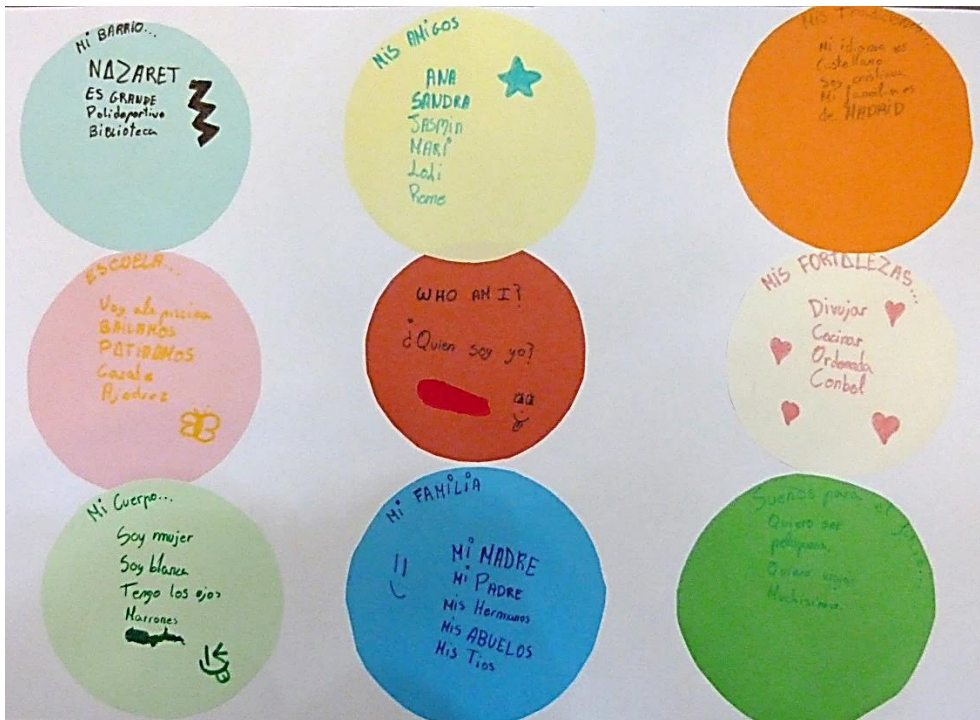 Mi BARRIO...
NAZARET
ES GRANDE
Polideportivo
Biblioteca
Mis AMIGOS
ANA
SANDRA
JASMIN
MARi
Loli
Rome
Mis
Mi idioma es
Castellano
Soy cristiana
Mi familia es
de MADRID
ESCUELA...
Voy a la piscina
BAILAMOS
PATINAMOS
Ajedrez
WHO AM I?
¿Quien soy yo?
Mis FORTALEZAS...
Divujar
Cocinar
Ordenada
Conbol
Mi Cuerpo...
Soy mujer
Soy blanca
Tengo los ojos
Marrones
Mi FAMiLiA
Mi MADRE
Mi PADRE
Mis Hermanos
Mis ABUELOS
Mis Tios
Sueños para el
Quiero ser
peluquera
Quiero viajar
Muchisimo